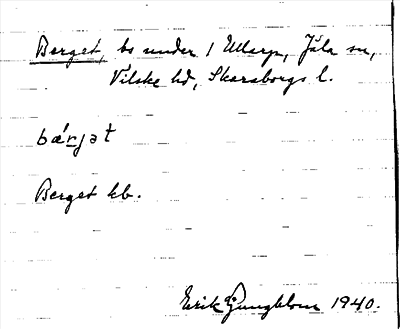 Berget, bs under 1 Ullarp, Jäla sn,
Vilske hd, Skaraborgs l.
bä́rjət
Berget kb.
Erik Ljungblom 1940.